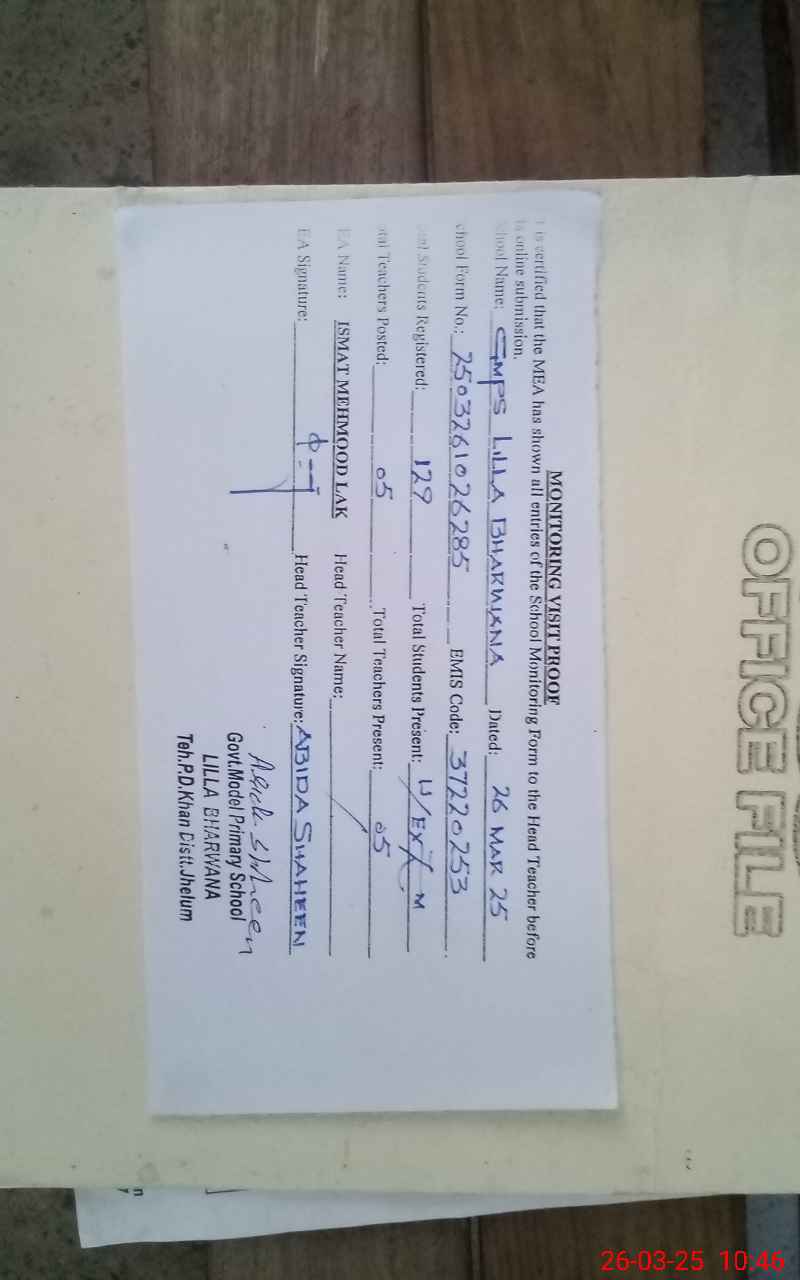 OFFICE FILE
MONITORING VISIT PROOF
is certified that the MEA has shown all entries of the School Monitoring Form to the Head Teacher before
online submission.
School Name: GMPS LILLA BHARWANA Dated: 26 MAR 25
chool Form No.: 2503261026285 EMIS Code: 37220253
Students Registered: 129 Total Students Present:
tal Teachers Posted: 05 Total Teachers Present: 05
EA Name: ISMAT MEHMOOD LAK Head Teacher Name:
EA Signature: Head Teacher Signature: ABIDA SHAHEEN
Govt.Model Primary School
LILLA BHARWANA
Teh.P.D.Khan Distt.Jhelum
26-03-25 10:46